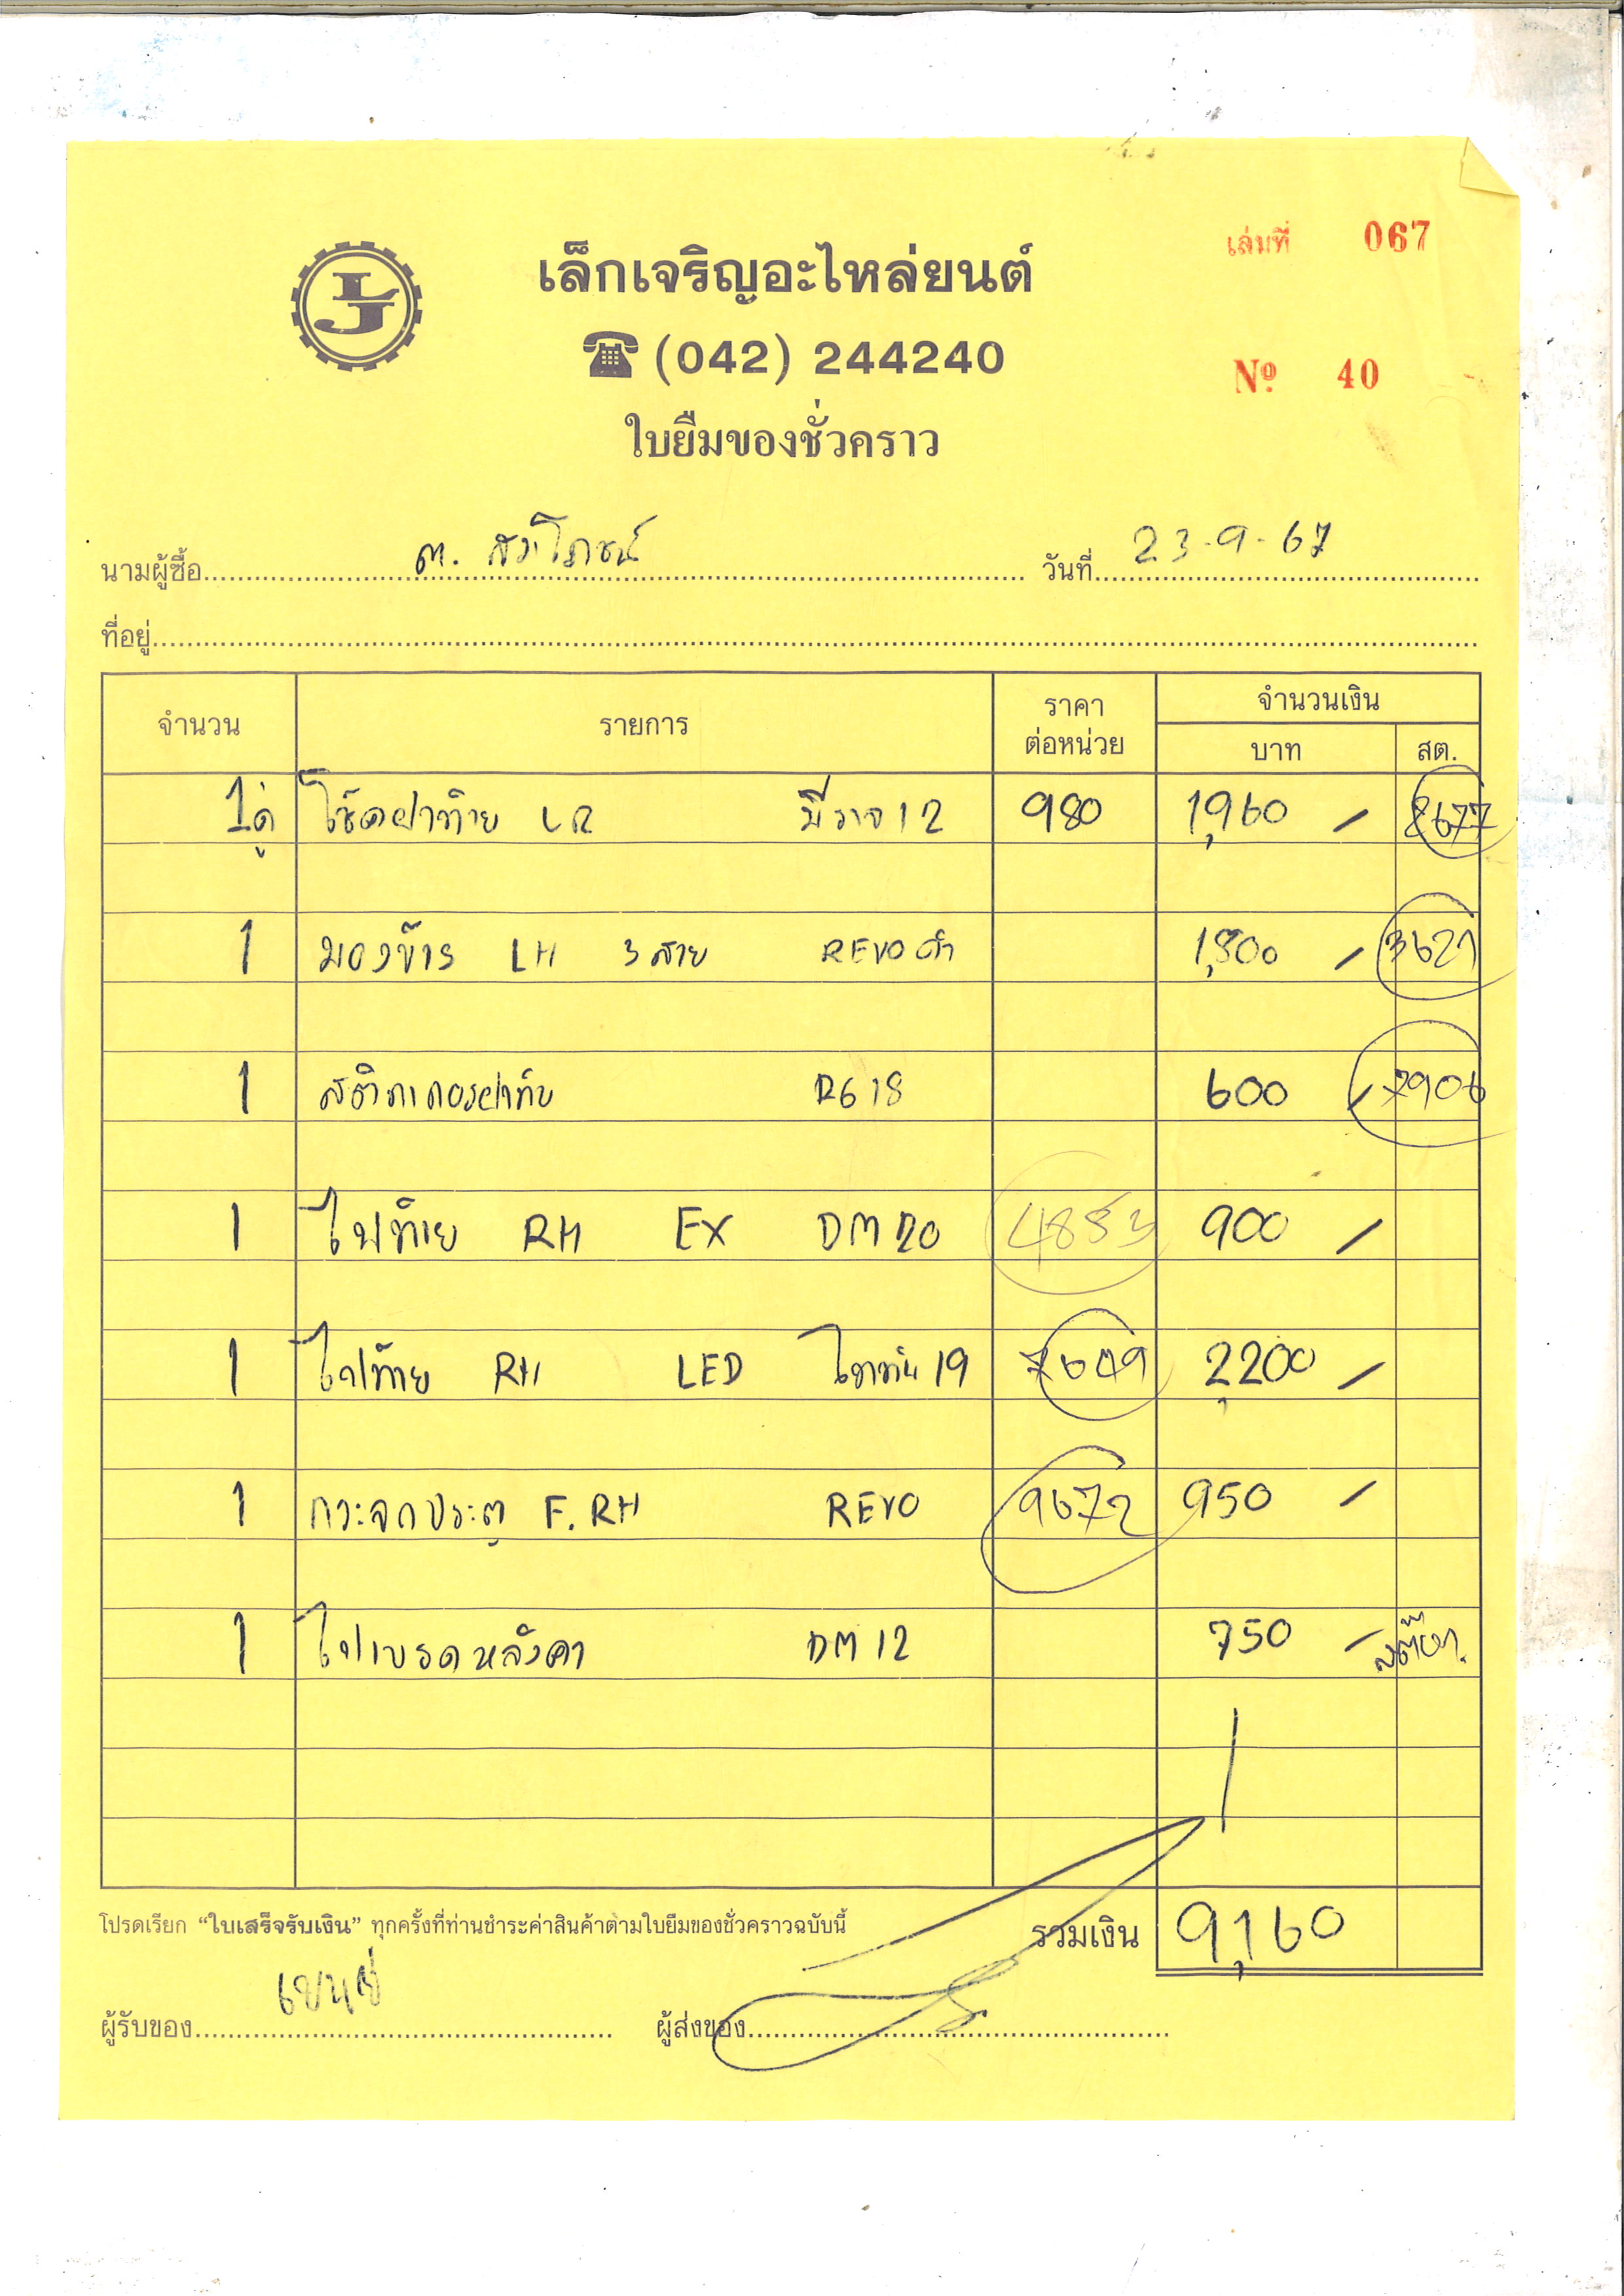 เล่มที่ 067
เล็กเจริญอะไหล่ยนต์
LJ
(042) 244240
Nº 40
ใบยืมของชั่วคราว
นามผู้ซื้อ ต. สมโภชน์ วันที่ 23-9-67
ที่อยู่
จำนวน รายการ ราคาต่อหน่วย จำนวนเงิน
บาท สต.
1คู่ โช๊คฝาท้าย LR มีราจ12 980 1,960 - 8677
1 มองข้าง LH 3 สาย REVO ดำ 1,800 - 3621
1 สติกเกอร์ฝาท้าย R6 18 600 - 7906
1 ไฟท้าย RH EX DM20 4853 900 -
1 ไฟท้าย RH LED ไททัน 19 7609 2,200 -
1 กระจกประตู F.RH REVO 9672 950 -
1 ไฟเบรคหลังคา DM12 750 -
โปรดเรียก “ใบเสร็จรับเงิน” ทุกครั้งที่ท่านชำระค่าสินค้าตามใบยืมของชั่วคราวฉบับนี้ รวมเงิน 9,160
ผู้รับของ ผู้ส่งของ